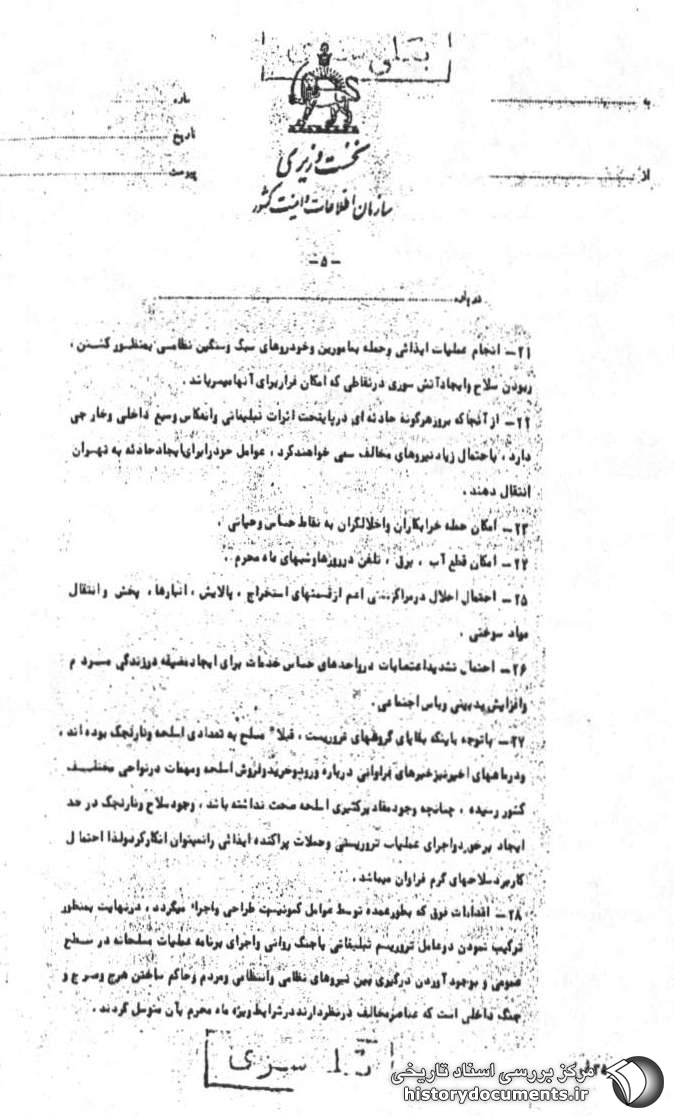 بکلی سری
به
شماره
تاریخ
از
پیوست
نخست وزیری
سازمان اطلاعات و امنیت کشور
-۵-
درباره
۲۱- انجام عملیات ایذائی وحمله بمامورین وخودروهای سبک وسنگین نظامی بمنظور کشتن ،
ربودن سلاح وایجاد آتش سوزی درنقاطی که امکان فراربرای آنها میسرباشد .
۲۲- از آنجا که بروز هرگونه حادثه ای درپایتخت اثرات تبلیغاتی وانعکاس وسیع داخلی وخارجی
دارد ، باحتمال زیاد نیروهای مخالف سعی خواهندکرد ، عوامل خودرا برای ایجادحادثه به تهران
انتقال دهند .
۲۳- امکان حمله خرابکاران واخلالگران به نقاط حساس وحیاتی .
۲۴- امکان قطع آب ، برق ، تلفن درروزهاوشبهای ماه محرم .
۲۵- احتمال اخلال درمراکز اعم ازقسمتهای استخراج ، پالایش ، انبارها ، پخش وانتقال
مواد سوختی .
۲۶- احتمال تشدید اعتصابات درواحدهای حساس خدمات برای ایجادمضیقه درزندگی مردم
وافزایش بدبینی ویاس اجتماعی .
۲۷- باتوجه باینکه بقایای گروههای تروریست ، قبلا" مسلح به تعدادی اسلحه ونارنجک بوده اند ،
ودرماههای اخیرنیزخبرهای فراوانی درباره ورودوخریدوفروش اسلحه ومهمات درنواحی مختلف
کشور رسیده ، چنانچه وجودمقادیرکثیری اسلحه صحت نداشته باشد ، وجودسلاح ونارنجک در حد
ایجاد برخوردواجرای عملیات تروریستی وحملات پراکنده ایذائی رانمیتوان انکارکردولذا احتمال
کاربردسلاحهای گرم فراوان میباشد .
۲۸- اقدامات فوق که بطورعمده توسط عوامل کمونیست طراحی واجراء میگردد ، درنهایت بمنظور
ترکیب نمودن دوعامل تروریسم تبلیغاتی یاجنگ روانی واجرای برنامه عملیات مسلحانه در سطح
عمومی و بوجود آوردن درگیری بین نیروهای نظامی وانتظامی ومردم وحاکم ساختن هرج ومرج و
جنگ داخلی است که عناصرمخالف درنظردارند درشرایط ویژه ماه محرم بآن متوسل گردند .
سری
مرکز بررسی اسناد تاریخی
historydocuments.ir